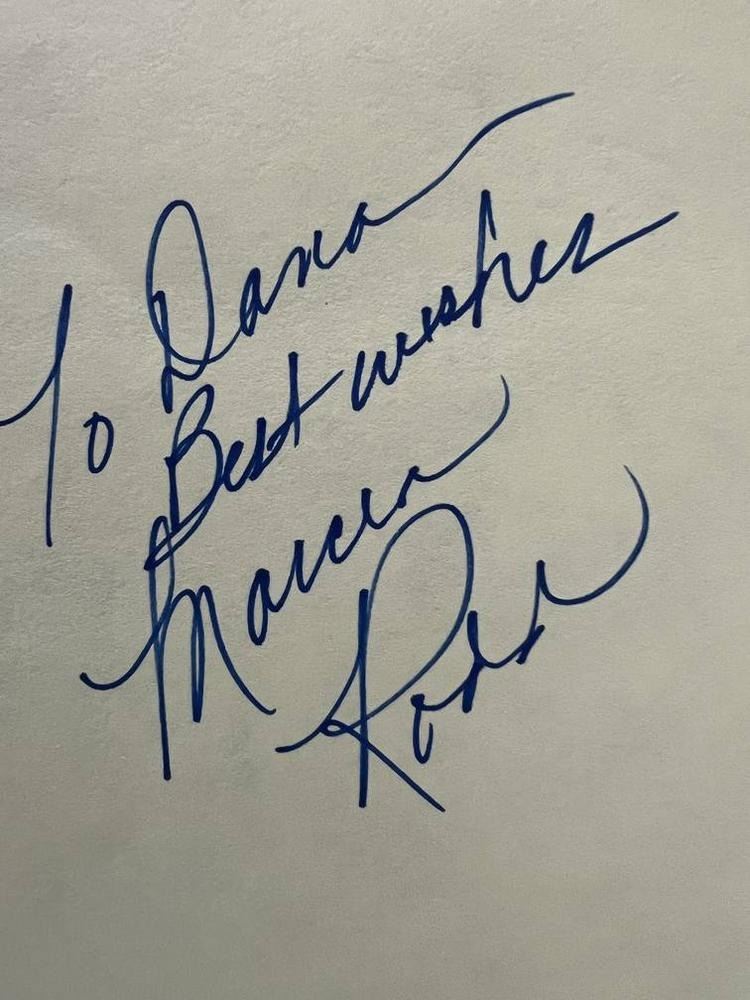 To Dana
Best wishes
Marcia
Rodd